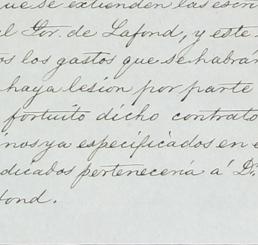 ue se extienden las escri
al Sor. de Lafond, y este
os los gastos que se habrán
haya lesión por parte
fortuito dicho contrato
inos ya especificados en e
dicados pertenecería á Dn.
fond.